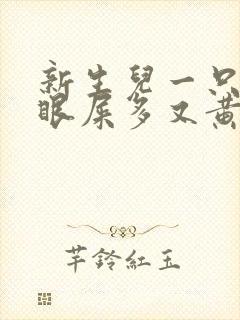 新生兒一只
眼屎多又黃
芊鈴紅玉